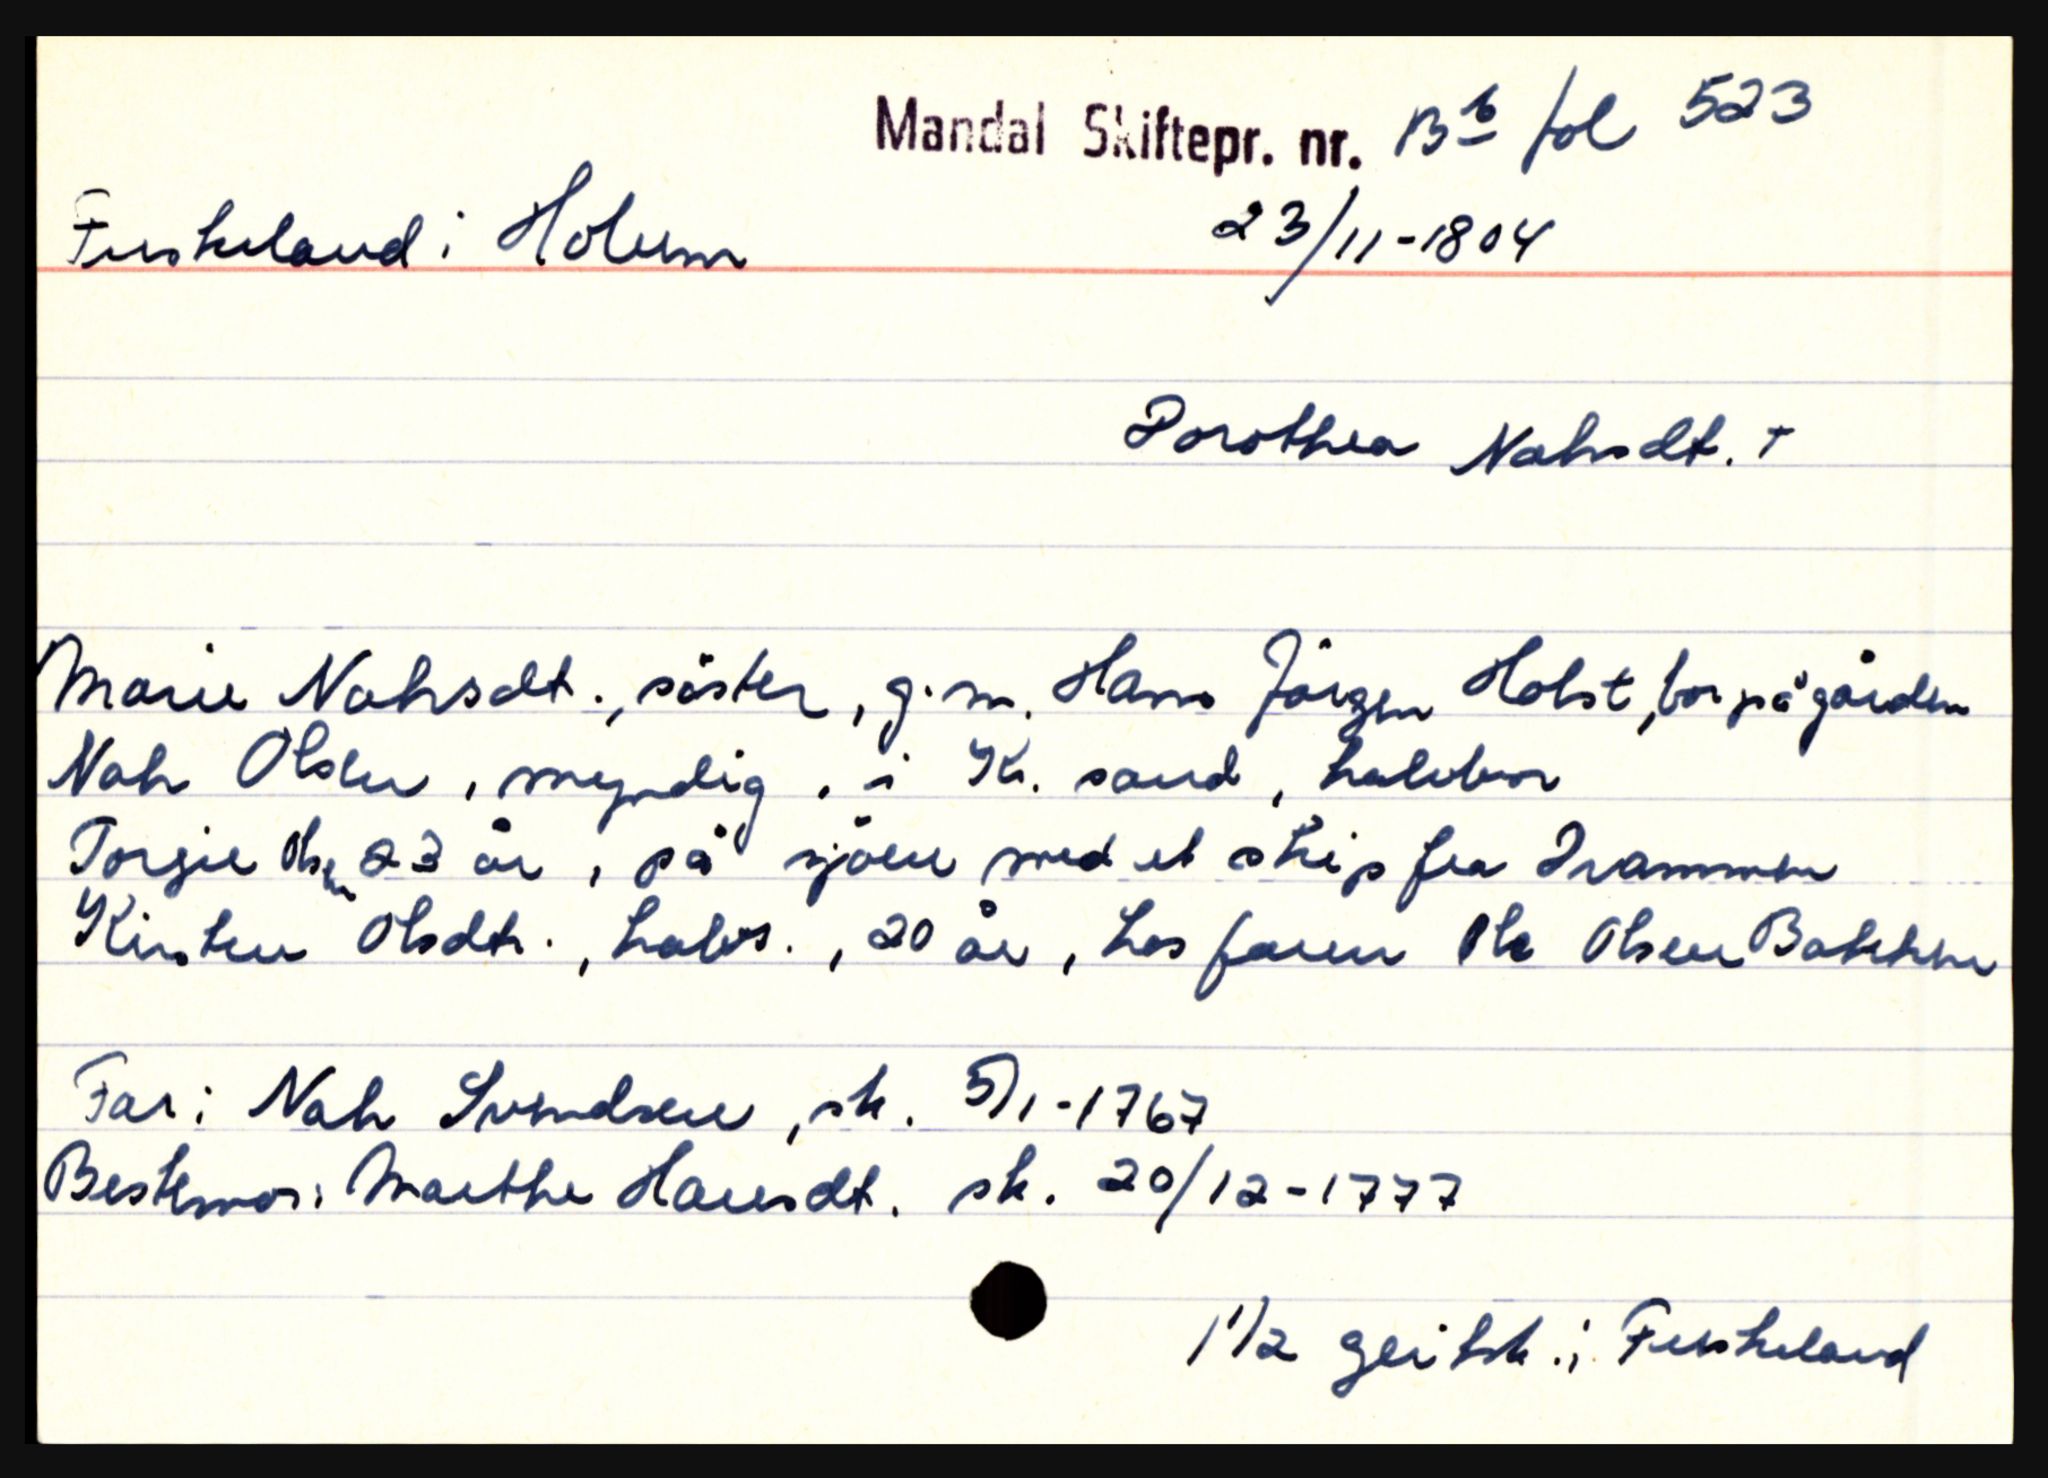 Mandal Skiftepr. nr. B b fol 523
Fuskeland i Holum 23/11-1804
Dorothea Nahsdt. +
Marie Nahsdt., söster, g.m. Hans Jörgen Holst, bor på gården
Nah Olsen, myndig, i Kr. sand, halvbror
Torgie Olsen 23 år, på sjöen med et skip fra Drammen
Kirsten Olsdtr., halvs., 20 år, hos faren Ole Olsen Bakken
Far: Nah Svendsen, sk. 5/1-1767
Bestemor: Marthe Hansdt. sk. 20/12-1777
1 1/2 geitsk. i Fuskeland